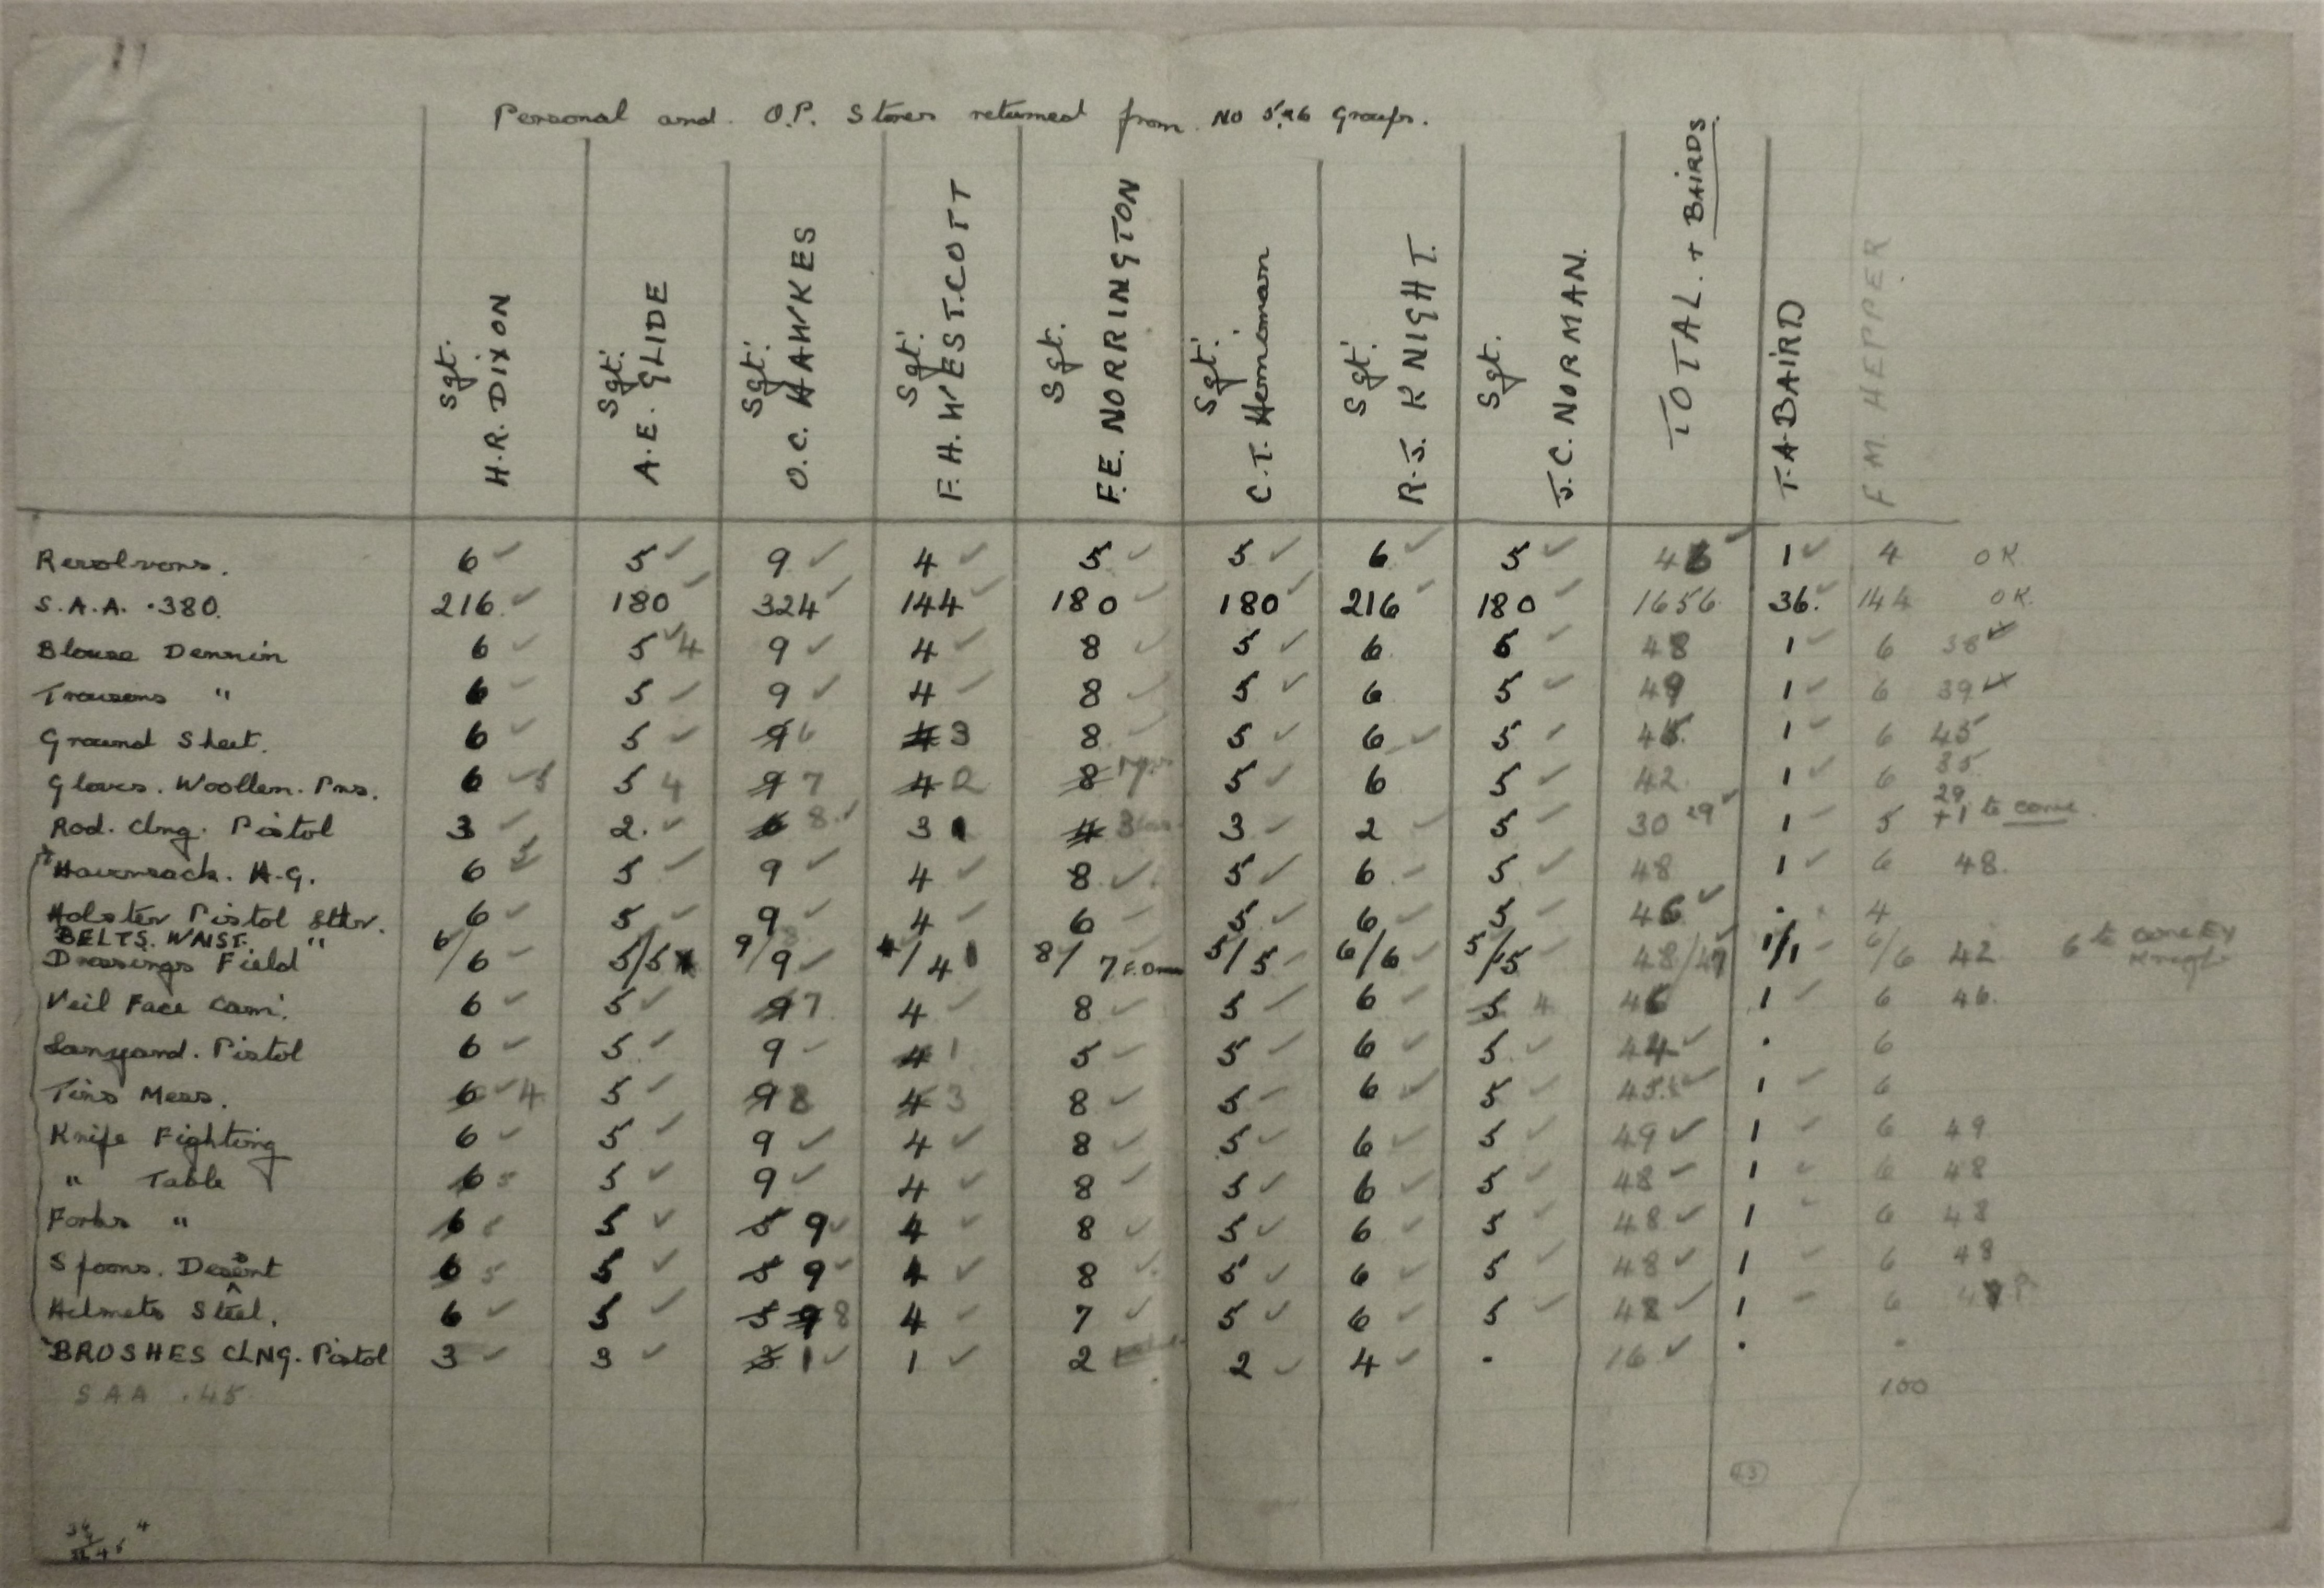 Personal and. O.P. Stores returned from. No 5&6 Groups.
Sgt. H.R. DIXON Sgt. A.E. GLIDE Sgt. O.C. HAWKES Sgt. F.H. WESTCOTT Sgt. F.E. NORRINGTON Sgt. C.T. Heminman Sgt. R.J. KNIGHT. Sgt. J.C. NORMAN. TOTAL. + BAIRDS. T.A. BAIRD F.M. HEPPER
Revolvers. 6 5 9 4 5 5 6 5 46 1 4 OK
S.A.A. .380. 216 180 324 144 180 180 216 180 1656 36. 144 OK.
Blouse Dennim 6 5 4 9 4 8 5 6 5 48 1 6 38
Trousers " 6 5 9 4 8 5 6 5 49 1 6 39
Ground Sheet. 6 5 9 6 4 3 8 5 6 5 45 1 6 45
Gloves. Woollen. Prs. 6 5 5 4 9 7 4 2 8 5 6 5 42 1 6 35
Rod. Clng. Pistol 3 2. 6 8 3 4 3 3 2 5 30 29 1 5 29 +1 to come
Haversack. H.G. 6 5 9 4 8 5 6 5 48 1 6 48.
Holster Pistol Lthr. 6 5 9 4 6 5 6 5 46 . 4
BELTS. WAIST. "
Dressings Field 6/6 5/5 9/9 4/4 8/7 5/5 6/6 5/5 48/47 1/1 6/6 42 6 to come Ex Knight
Veil Face Cam. 6 5 9 7 4 8 5 6 5 4 46 1 6 46.
Lanyard. Pistol 6 5 9 4 1 5 5 6 5 44 . 6
Tins Mess. 6 4 5 9 8 4 3 8 5 6 5 45 1 6
Knife Fighting 6 5 9 4 8 5 6 5 49 1 6 49
" Table 6 5 5 9 4 8 5 6 5 48 1 6 48
Forks " 6 5 5 9 4 8 5 6 5 48 1 6 48
Spoons. Desert 6 5 5 5 9 4 8 5 6 5 48 1 6 48
Helmets Steel. 6 5 5 9 8 4 7 5 6 5 48 1 6
BRUSHES CLNG. Pistol 3 3 3 1 1 2 2 4 . 16 . .
SAA .45 100
43